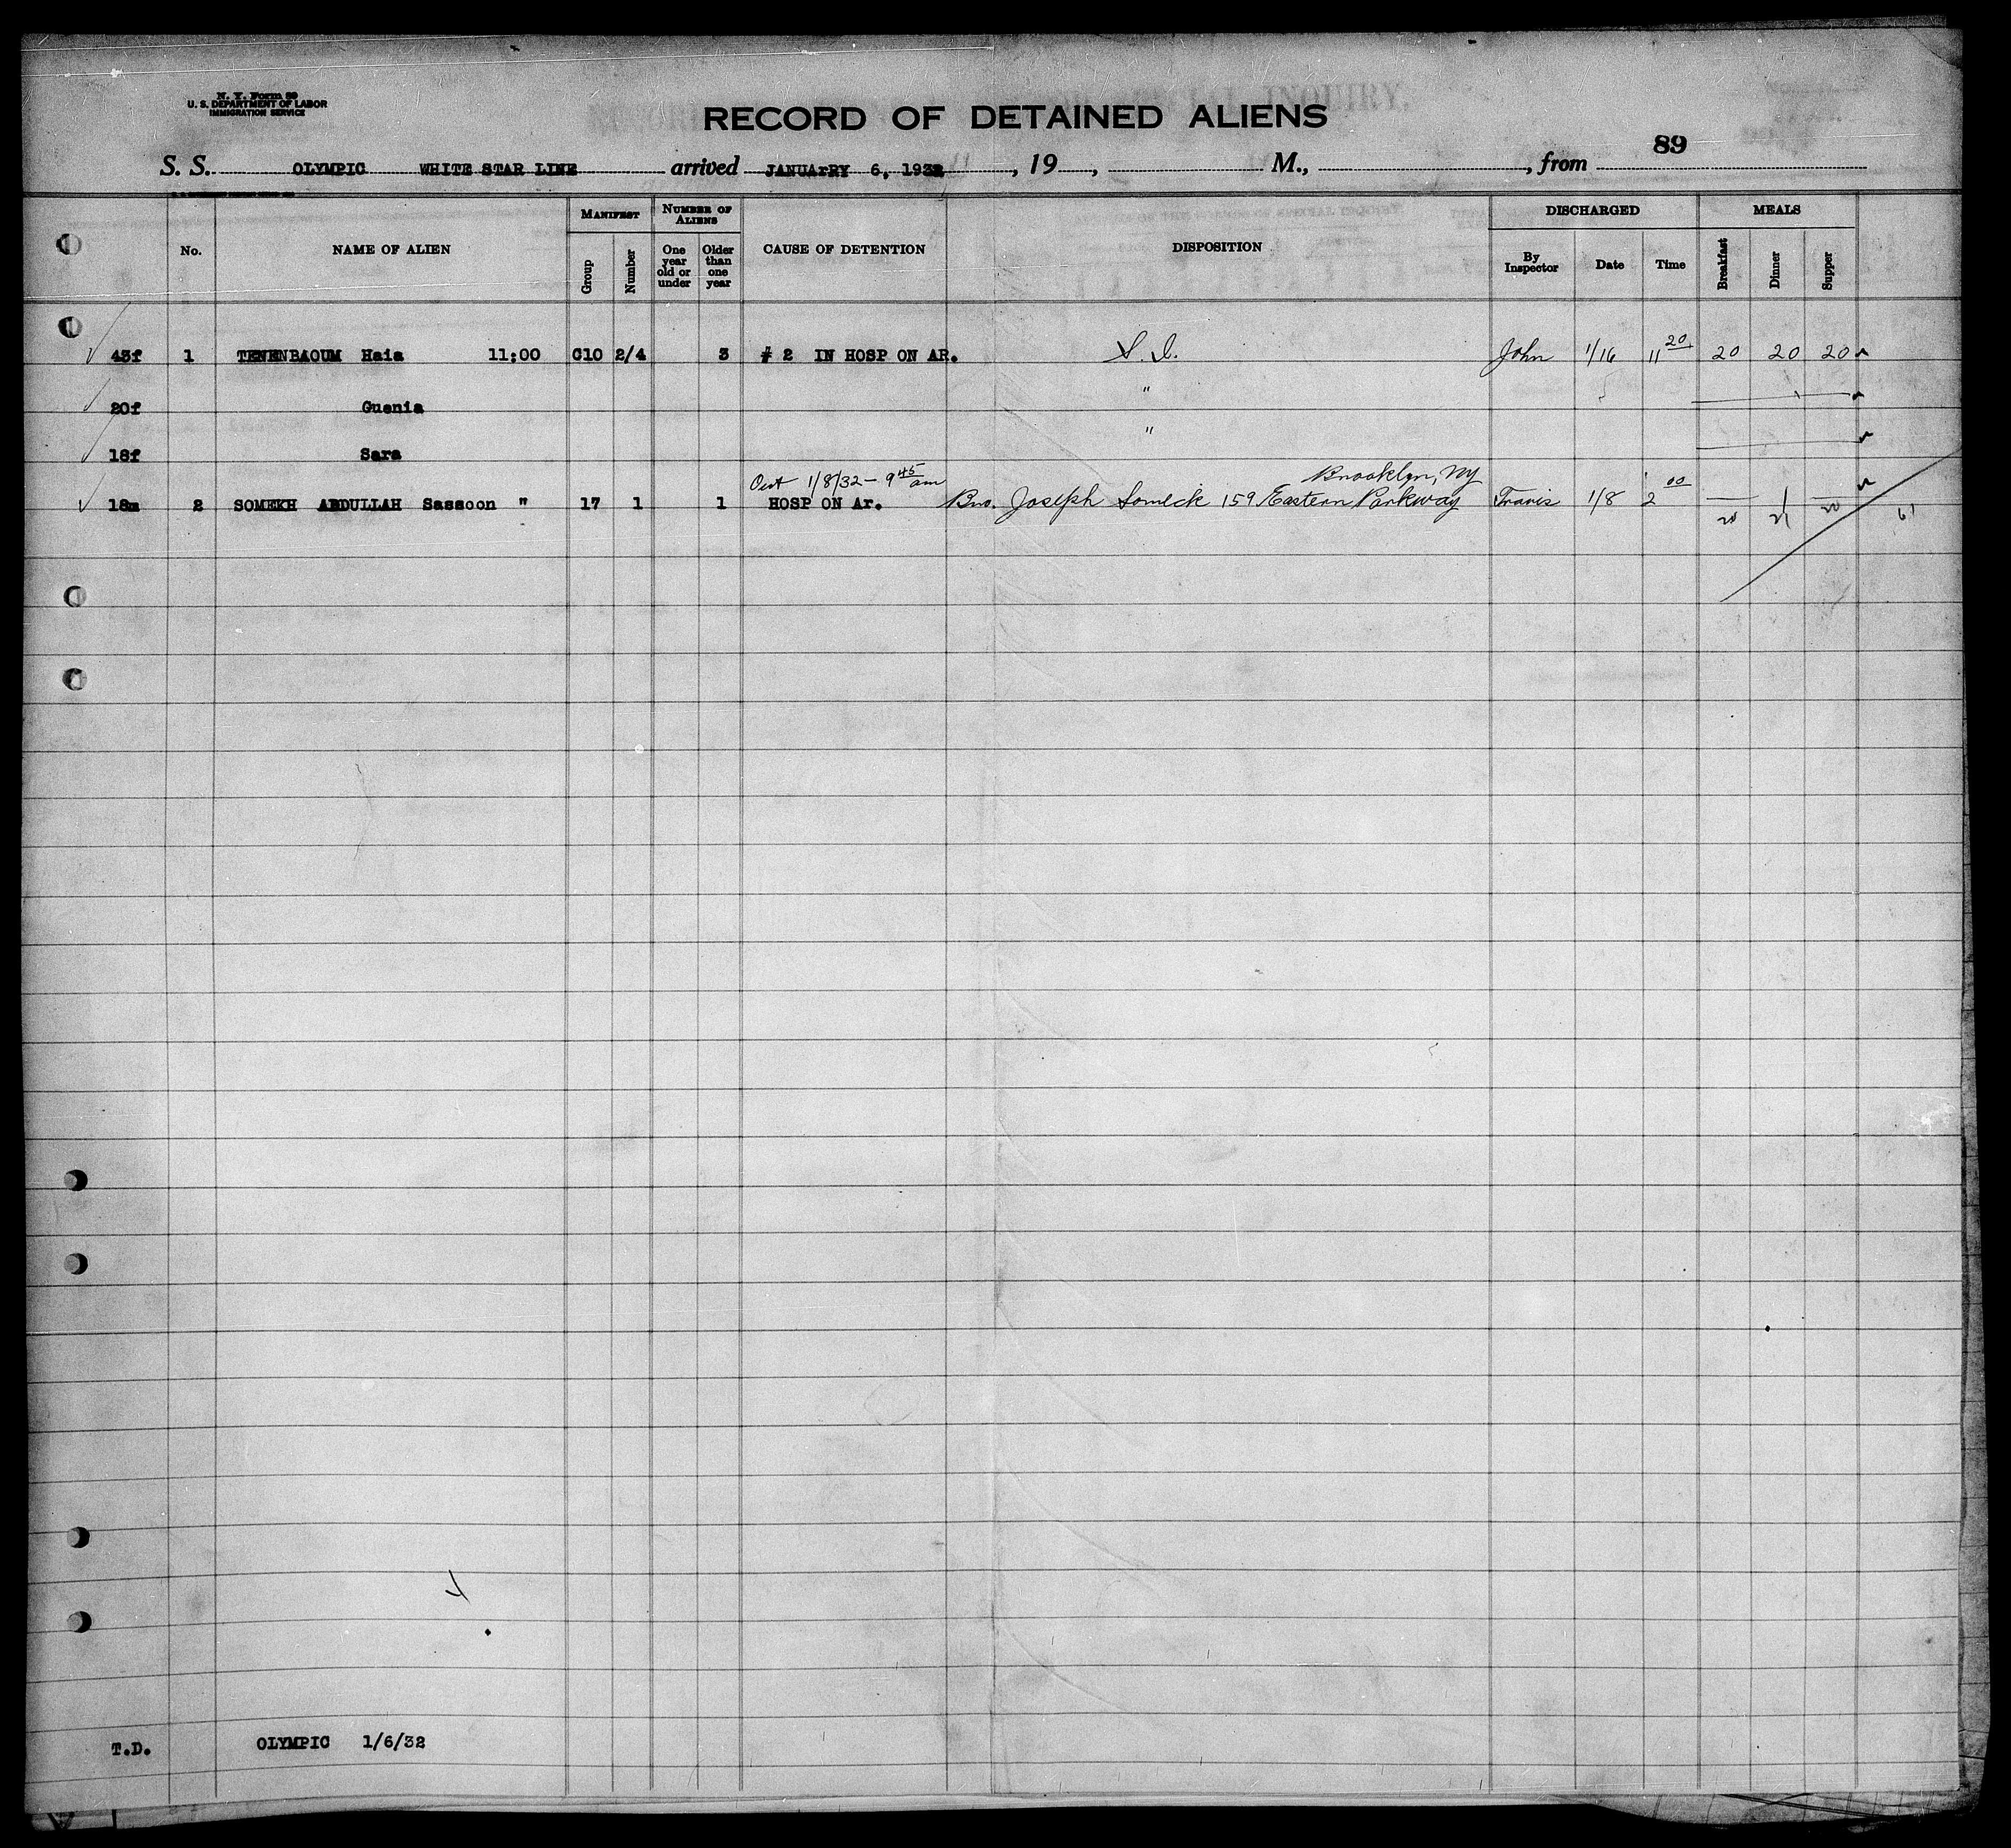 N. Y. Form 89
U. S. DEPARTMENT OF LABOR
IMMIGRATION SERVICE
RECORD OF DETAINED ALIENS
89
S. S. OLYMPIC WHITE STAR LINE arrived JANUArRY 6, 1932, 19 , M., , from
No. NAME OF ALIEN MANIFEST Group Number NUMBER OF ALIENS One year old or under Older than one year CAUSE OF DETENTION DISPOSITION DISCHARGED By Inspector Date Time MEALS Breakfast Dinner Supper
43f 1 TENENBAOUM Haia 11:00 C10 2/4 3 # 2 IN HOSP ON AR. S.I. John 1/16 11 20 20 20 20
20f Guenia "
18f Sara "
Out 1/8/32 - 9 45 am Brooklyn, NY
18m 2 SOMEKH ABDULLAH Sassoon " 17 1 1 HOSP ON Ar. Bro. Joseph Someck 159 Eastern Parkway Travis 1/8 2 00
20 21 20 61
T.D. OLYMPIC 1/6/32